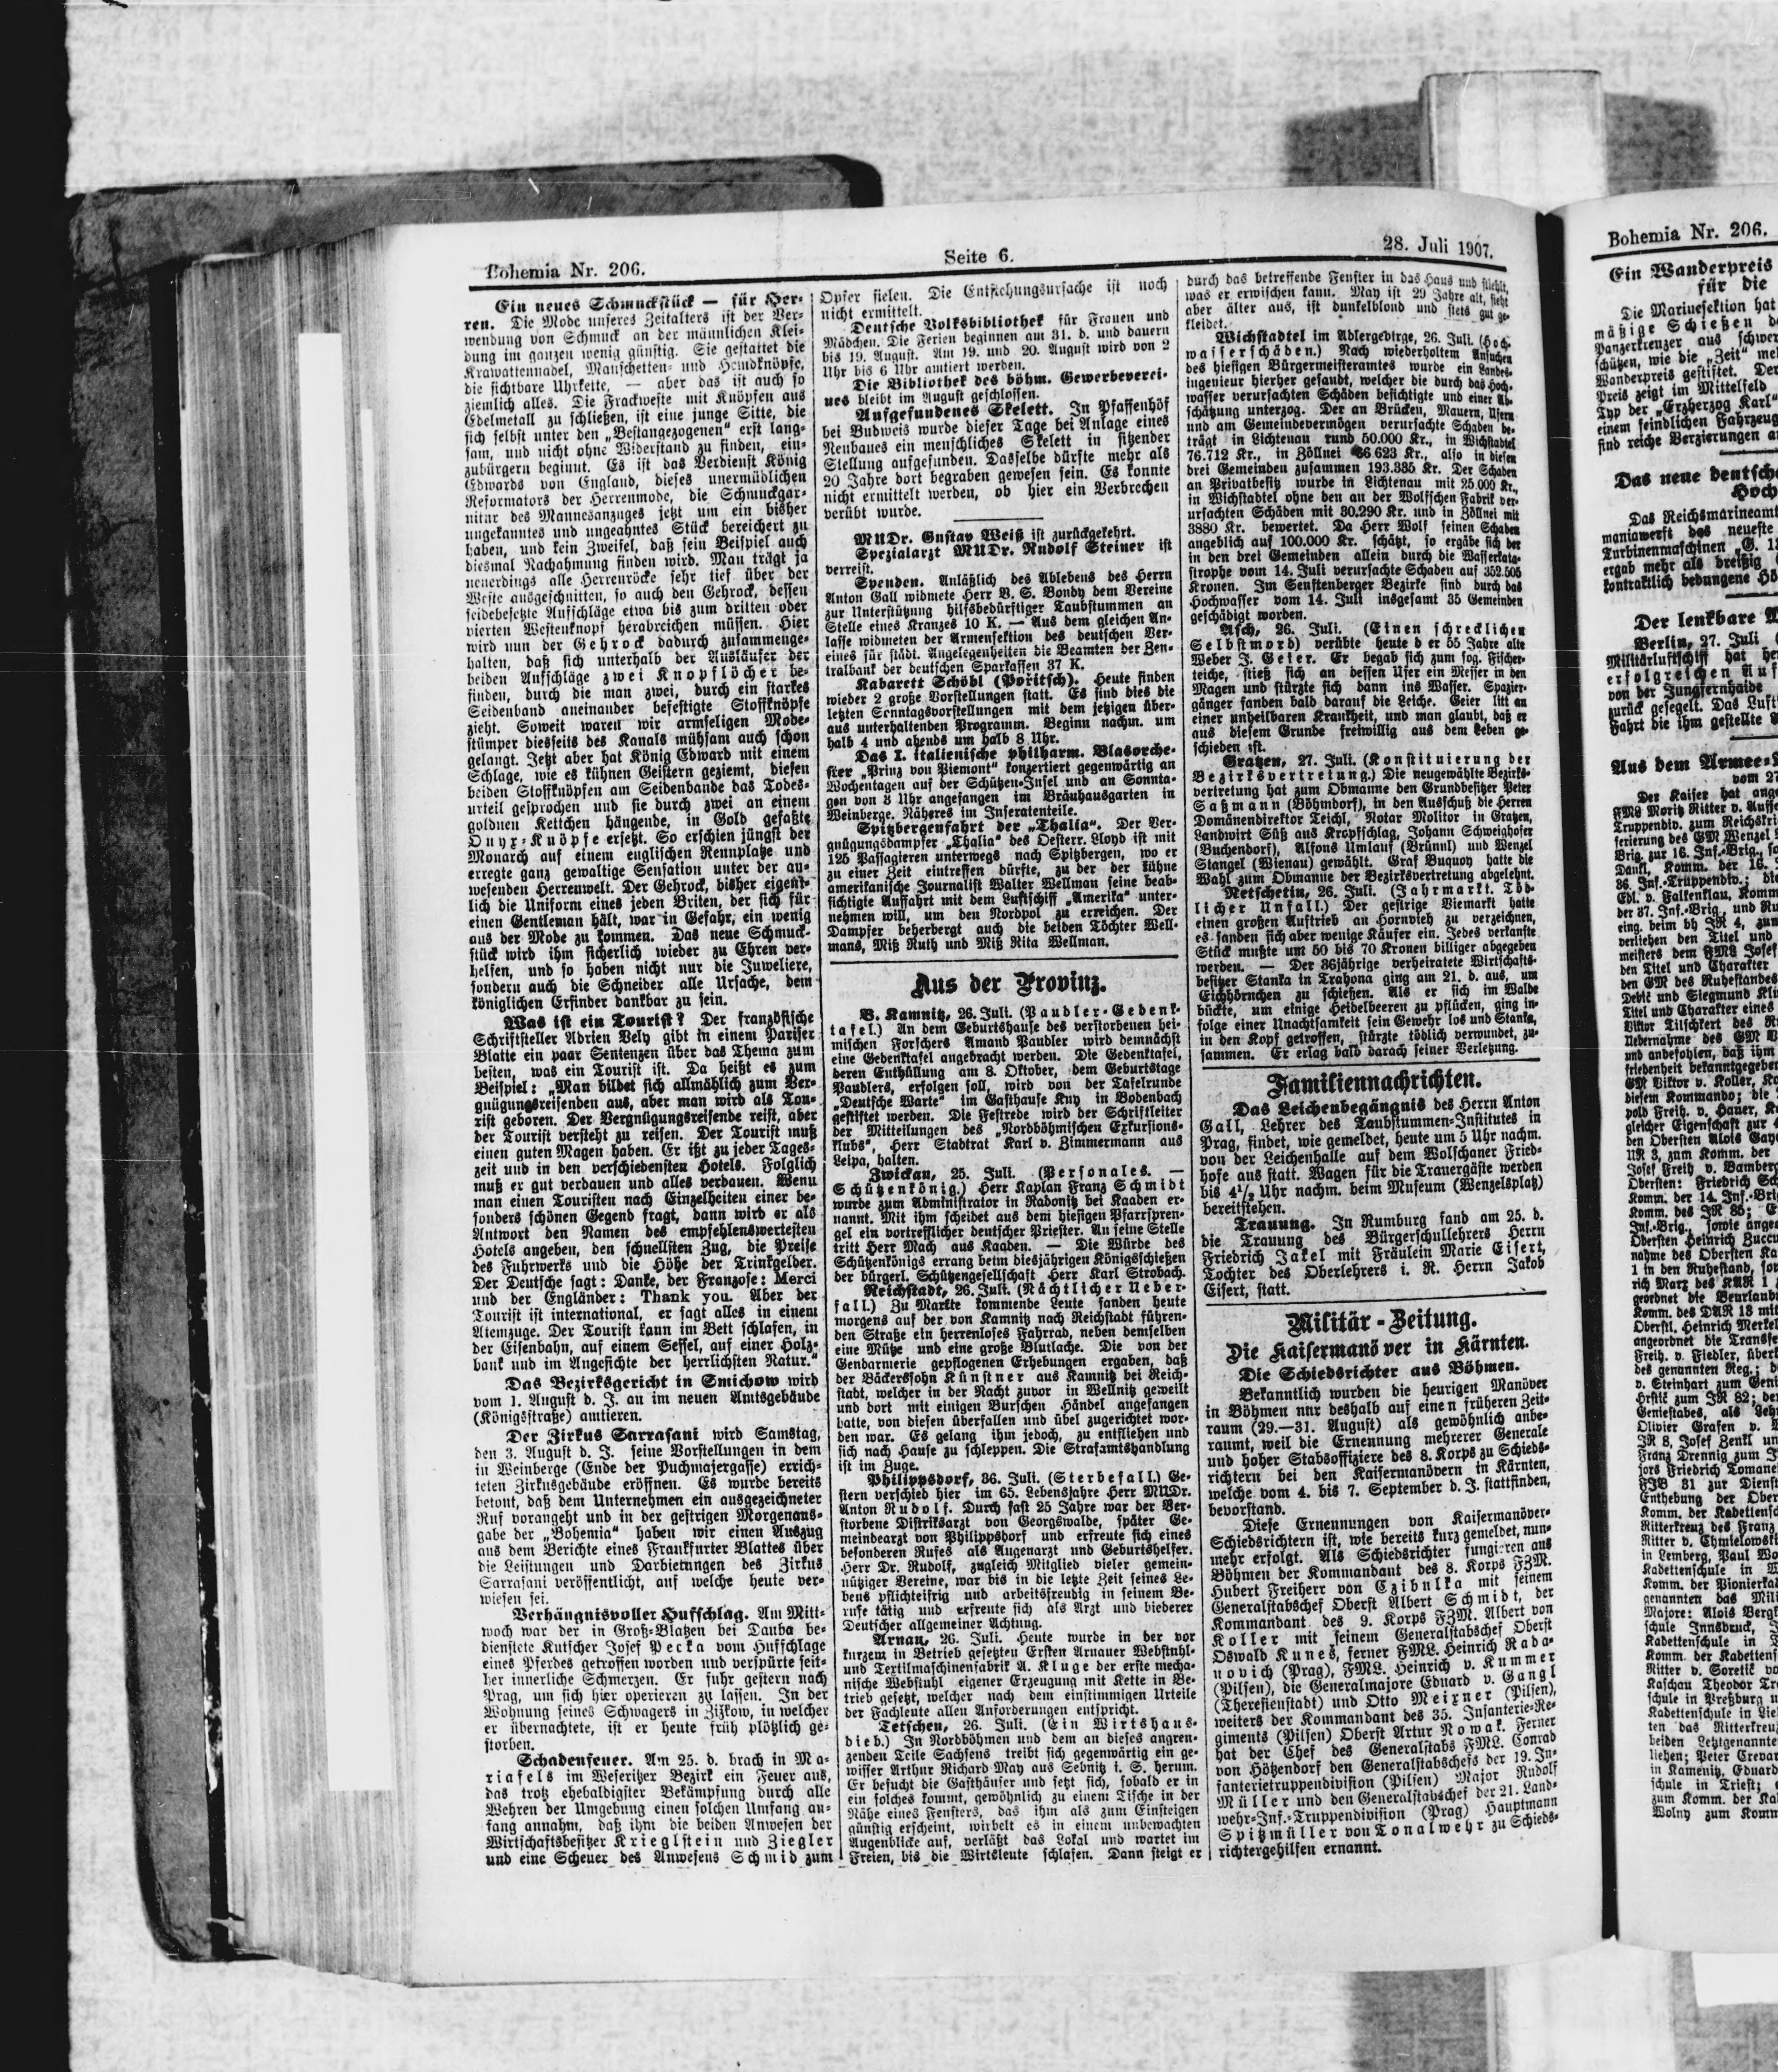 Bohemia Nr. 206.
Seite 6.
28. Juli 1907.
Ein neues Schmuckstück — für Her-
ren. Die Mode unseres Zeitalters ist der Ver-
wendung von Schmuck an der männlichen Klei-
dung im ganzen wenig günstig. Sie gestattet die
Krawattennadel, Manschetten- und Hemdknöpfe,
die sichtbare Uhrkette, — aber das ist auch so
ziemlich alles. Die Frackweste mit Knöpfen aus
Edelmetall zu schließen, ist eine junge Sitte, die
sich selbst unter den „Bestangezogenen“ erst lang-
sam, und nicht ohne Widerstand zu finden, ein-
zubürgern beginnt. Es ist das Verdienst König
Edwards von England, dieses unermüdlichen
Reformators der Herrenmode, die Schmuckgar-
nitur des Mannesanzuges jetzt um ein bisher
ungekanntes und ungeahntes Stück bereichert zu
haben, und kein Zweifel, daß sein Beispiel auch
diesmal Nachahmung finden wird. Man trägt ja
neuerdings alle Herrenröcke sehr tief über der
Weste ausgeschnitten, so auch den Gehrock, dessen
seidebesetzte Aufschläge etwa bis zum dritten oder
vierten Westenknopf herabreichen müssen. Hier
wird nun der Gehrock dadurch zusammenge-
halten, daß sich unterhalb der Ausläufer der
beiden Aufschläge zwei Knopflöcher be-
finden, durch die man zwei, durch ein starkes
Seidenband aneinander befestigte Stoffknöpfe
zieht. Soweit waren wir armseligen Mode-
stümper diesseits des Kanals mühsam auch schon
gelangt. Jetzt aber hat König Edward mit einem
Schlage, wie es kühnen Geistern geziemt, diesen
beiden Stoffknöpfen am Seidenbande das Todes-
urteil gesprochen und sie durch zwei an einem
goldnen Kettchen hängende, in Gold gefaßte
Onyx-Knöpfe ersetzt. So erschien jüngst der
Monarch auf einem englischen Rennplatze und
erregte ganz gewaltige Sensation unter der an-
wesenden Herrenwelt. Der Gehrock, bisher eigent-
lich die Uniform eines jeden Briten, der sich für
einen Gentleman hält, war in Gefahr, ein wenig
aus der Mode zu kommen. Das neue Schmuck-
stück wird ihm sicherlich wieder zu Ehren ver-
helfen, und so haben nicht nur die Juweliere,
sondern auch die Schneider alle Ursache, dem
königlichen Erfinder dankbar zu sein.
Was ist ein Tourist? Der französische
Schriftsteller Adrien Vely gibt in einem Pariser
Blatte ein paar Sentenzen über das Thema zum
besten, was ein Tourist ist. Da heißt es zum
Beispiel: „Man bildet sich allmählich zum Ver-
gnügungsreisenden aus, aber man wird als Tou-
rist geboren. Der Vergnügungsreisende reist, aber
der Tourist versteht zu reisen. Der Tourist muß
einen guten Magen haben. Er ißt zu jeder Tages-
zeit und in den verschiedensten Hotels. Folglich
muß er gut verdauen und alles verdauen. Wenn
man einen Touristen nach Einzelheiten einer be-
sonders schönen Gegend fragt, dann wird er als
Antwort den Namen des empfehlenswertesten
Hotels angeben, den schnellsten Zug, die Preise
des Fuhrwerks und die Höhe der Trinkgelder.
Der Deutsche sagt: Danke, der Franzose: Merci
und der Engländer: Thank you. Aber der
Tourist ist international, er sagt alles in einem
Atemzuge. Der Tourist kann im Bett schlafen, in
der Eisenbahn, auf einem Sessel, auf einer Holz-
bank und im Angesichte der herrlichsten Natur.“
Das Bezirksgericht in Smichow wird
vom 1. August d. J. an im neuen Amtsgebäude
(Königsstraße) amtieren.
Der Zirkus Sarrasani wird Samstag,
den 3. August d. J. seine Vorstellungen in dem
in Weinberge (Ende der Puchmajergasse) errich-
teten Zirkusgebäude eröffnen. Es wurde bereits
betont, daß dem Unternehmen ein ausgezeichneter
Ruf vorangeht und in der gestrigen Morgenaus-
gabe der „Bohemia“ haben wir einen Auszug
aus dem Berichte eines Frankfurter Blattes über
die Leistungen und Darbietungen des Zirkus
Sarrasani veröffentlicht, auf welche heute ver-
wiesen sei.
Verhängnisvoller Hufschlag. Am Mitt-
woch war der in Groß-Blatzen bei Dauba be-
dienstete Kutscher Josef Pecka vom Hufschlage
eines Pferdes getroffen worden und verspürte seit-
her innerliche Schmerzen. Er fuhr gestern nach
Prag, um sich hier operieren zu lassen. In der
Wohnung seines Schwagers in Zizkow, in welcher
er übernachtete, ist er heute früh plötzlich ge-
storben.
Schadenfeuer. Am 25. d. brach in Ma-
riafels im Weseritzer Bezirk ein Feuer aus,
das trotz ehebaldigster Bekämpfung durch alle
Wehren der Umgebung einen solchen Umfang an-
fang annahm, daß ihm die beiden Anwesen der
Wirtschaftsbesitzer Krieglstein und Ziegler
und eine Scheuer des Anwesens Schmid zum
Opfer fielen. Die Entstehungsursache ist noch
nicht ermittelt.
Deutsche Volksbibliothek für Frauen und
Mädchen. Die Ferien beginnen am 31. d. und dauern
bis 19. August. Am 19. und 20. August wird von 2
Uhr bis 6 Uhr amtiert werden.
Die Bibliothek des böhm. Gewerbeverei-
nes bleibt im August geschlossen.
Aufgefundenes Skelett. In Pfaffenhöf
bei Budweis wurde dieser Tage bei Anlage eines
Neubaues ein menschliches Skelett in sitzender
Stellung aufgefunden. Dasselbe dürfte mehr als
20 Jahre dort begraben gewesen sein. Es konnte
nicht ermittelt werden, ob hier ein Verbrechen
verübt wurde.
MUDr. Gustav Weiß ist zurückgekehrt.
Spezialarzt MUDr. Rudolf Steiner ist
verreist.
Spenden. Anläßlich des Ablebens des Herrn
Anton Gall widmete Herr B. S. Bondy dem Vereine
zur Unterstützung hilfsbedürftiger Taubstummen an
Stelle eines Kranzes 10 K. — Aus dem gleichen An-
lasse widmeten der Armensektion des deutschen Ver-
eines für städt. Angelegenheiten die Beamten der Zen-
tralbank der deutschen Sparkassen 37 K.
Kabarett Schöbl (Poritsch). Heute finden
wieder 2 große Vorstellungen statt. Es sind dies die
letzten Sonntagsvorstellungen mit dem jetzigen über-
aus unterhaltenden Programm. Beginn nachm. um
halb 4 und abends um halb 8 Uhr.
Das I. italienische philharm. Blasorche-
ster „Prinz von Piemont“ konzertiert gegenwärtig an
Wochentagen auf der Schützen-Insel und an Sonnta-
gen von 3 Uhr angefangen im Bräuhausgarten in
Weinberge. Näheres im Inseratenteile.
Spitzbergenfahrt der „Thalia“. Der Ver-
gnügungsdampfer „Thalia“ des Oesterr. Lloyd ist mit
125 Passagieren unterwegs nach Spitzbergen, wo er
zu einer Zeit eintreffen dürfte, zu der der kühne
amerikanische Journalist Walter Wellman seine beab-
sichtigte Auffahrt mit dem Luftschiff „Amerika“ unter-
nehmen will, um den Nordpol zu erreichen. Der
Dampfer beherbergt auch die beiden Töchter Well-
mans, Miß Ruth und Miß Rita Wellman.
Aus der Provinz.
B. Kamnitz, 26. Juli. (Paudler-Gedenk-
tafel.) An dem Geburtshause des verstorbenen hei-
mischen Forschers Amand Paudler wird demnächst
eine Gedenktafel angebracht werden. Die Gedenktafel,
deren Enthüllung am 8. Oktober, dem Geburtstage
Paudlers, erfolgen soll, wird von der Tafelrunde
„Deutsche Warte“ im Gasthause Kny in Bodenbach
gestiftet werden. Die Festrede wird der Schriftleiter
der Mitteilungen des „Nordböhmischen Exkursions-
klubs“, Herr Stadtrat Karl v. Zimmermann aus
Leipa, halten.
Zwickau, 25. Juli. (Personales. —
Schützenkönig.) Herr Kaplan Franz Schmidt
wurde zum Administrator in Radonitz bei Kaaden er-
nannt. Mit ihm scheidet aus dem hiesigen Pfarrspren-
gel ein vortrefflicher deutscher Priester. An seine Stelle
tritt Herr Mach aus Kaaden. — Die Würde des
Schützenkönigs errang beim diesjährigen Königsschießen
der bürgerl. Schützengesellschaft Herr Karl Strobach.
Reichstadt, 26. Juli. (Nächtlicher Ueber-
fall.) Zu Markte kommende Leute fanden heute
morgens auf der von Kamnitz nach Reichstadt führen-
den Straße ein herrenloses Fahrrad, neben demselben
eine Mütze und eine große Blutlache. Die von der
Gendarmerie gepflogenen Erhebungen ergaben, daß
der Bäckersohn Künstner aus Kamnitz bei Reich-
stadt, welcher in der Nacht zuvor in Wellnitz geweilt
und dort mit einigen Burschen Händel angefangen
hatte, von diesen überfallen und übel zugerichtet wor-
den war. Es gelang ihm jedoch, zu entfliehen und
sich nach Hause zu schleppen. Die Strafamtshandlung
ist im Zuge.
Philippsdorf, 36. Juli. (Sterbefall.) Ge-
stern verschied hier im 65. Lebensjahre Herr MUDr.
Anton Rudolf. Durch fast 25 Jahre war der Ver-
storbene Distriksarzt von Georgswalde, später Ge-
meindearzt von Philippsdorf und erfreute sich eines
besonderen Rufes als Augenarzt und Geburtshelfer.
Herr Dr. Rudolf, zugleich Mitglied vieler gemein-
nütziger Vereine, war bis in die letzte Zeit seines Le-
bens pflichteifrig und arbeitsfreudig in seinem Be-
rufe tätig und erfreute sich als Arzt und biederer
Deutscher allgemeiner Achtung.
Arnau, 26. Juli. Heute wurde in der vor
kurzem in Betrieb gesetzten Ersten Arnauer Webstuhl-
und Textilmaschinenfabrik A. Kluge der erste mecha-
nische Webstuhl eigener Erzeugung mit Kette in Be-
trieb gesetzt, welcher nach dem einstimmigen Urteile
der Fachleute allen Anforderungen entspricht.
Tetschen, 26. Juli. (Ein Wirtshaus-
dieb.) In Nordböhmen und dem an dieses angren-
zenden Teile Sachsens treibt sich gegenwärtig ein ge-
wisser Arthur Richard May aus Sebnitz i. S. herum.
Er besucht die Gasthäuser und setzt sich, sobald er in
ein solches kommt, gewöhnlich zu einem Tische in der
Nähe eines Fensters, das ihm als zum Einsteigen
günstig erscheint, wirbelt es in einem unbewachten
Augenblicke auf, verläßt das Lokal und wartet im
Freien, bis die Wirtsleute schlafen. Dann steigt er
durch das betreffende Fenster in das Haus und stiehlt,
was er erwischen kann. May ist 29 Jahre alt, sieht
aber älter aus, ist dunkelblond und stets gut ge-
kleidet.
Wichstadtel im Adlergebirge, 26. Juli. (Hoch-
wasserschäden.) Nach wiederholtem Ansuchen
des hiesigen Bürgermeisteramtes wurde ein Landes-
ingenieur hierher gesandt, welcher die durch das Hoch-
wasser verursachten Schäden besichtigte und einer Ab-
schätzung unterzog. Der an Brücken, Mauern, Ufern
und am Gemeindevermögen verursachte Schaden be-
trägt in Lichtenau rund 50.000 Kr., in Wichstadtel
76.712 Kr., in Zöllnei 66.623 Kr., also in diesen
drei Gemeinden zusammen 193.335 Kr. Der Schaden
an Privatbesitz wurde in Lichtenau mit 25.000 Kr.,
in Wichstadtel ohne den an der Wolfschen Fabrik ver-
ursachten Schäden mit 30.290 Kr. und in Zöllnei mit
3880 Kr. bewertet. Da Herr Wolf seinen Schaden
angeblich auf 100.000 Kr. schätzt, so ergäbe sich der
in den drei Gemeinden allein durch die Wasserkata-
strophe vom 14. Juli verursachte Schaden auf 352.505
Kronen. Im Senftenberger Bezirke sind durch das
Hochwasser vom 14. Juli insgesamt 35 Gemeinden
geschädigt worden.
Asch, 26. Juli. (Einen schrecklichen
Selbstmord) verübte heute der 55 Jahre alte
Weber J. Geier. Er begab sich zum sog. Fischer-
teiche, stieß sich an dessen Ufer ein Messer in den
Magen und stürzte sich dann ins Wasser. Spazier-
gänger fanden bald darauf die Leiche. Geier litt an
einer unheilbaren Krankheit, und man glaubt, daß er
aus diesem Grunde freiwillig aus dem Leben ge-
schieden ist.
Gratzen, 27. Juli. (Konstituierung der
Bezirksvertretung.) Die neugewählte Bezirks-
vertretung hat zum Obmanne den Grundbesitzer Peter
Saßmann (Böhmdorf), in den Ausschuß die Herren
Domänendirektor Teichl, Notar Molitor in Gratzen,
Landwirt Süß aus Kropfschlag, Johann Schweighofer
(Buchendorf), Alfons Umlauf (Brünnl) und Wenzel
Stangel (Wienau) gewählt. Graf Buquoy hatte die
Wahl zum Obmanne der Bezirksvertretung abgelehnt.
Netschetin, 26. Juli. (Jahrmarkt. Töd-
licher Unfall.) Der gestrige Viemarkt hatte
einen großen Auftrieb an Hornvieh zu verzeichnen,
es fanden sich aber wenige Käufer ein. Jedes verkaufte
Stück mußte um 50 bis 70 Kronen billiger abgegeben
werden. — Der 36jährige verheiratete Wirtschafts-
besitzer Stanka in Trahona ging am 21. d. aus, um
Eichhörnchen zu schießen. Als er sich im Walde
bückte, um einige Heidelbeeren zu pflücken, ging in-
folge einer Unachtsamkeit sein Gewehr los und Stanka,
in den Kopf getroffen, stürzte tödlich verwundet, zu-
sammen. Er erlag bald darach seiner Verletzung.
Familiennachrichten.
Das Leichenbegängnis des Herrn Anton
Gall, Lehrer des Taubstummen-Institutes in
Prag, findet, wie gemeldet, heute um 5 Uhr nachm.
von der Leichenhalle auf dem Wolschaner Fried-
hofe aus statt. Wagen für die Trauergäste werden
bis 4½ Uhr nachm. beim Museum (Wenzelsplatz)
bereitstehen.
Trauung. In Rumburg fand am 25. d.
die Trauung des Bürgerschullehrers Herrn
Friedrich Jakel mit Fräulein Marie Eisert,
Tochter des Oberlehrers i. R. Herrn Jakob
Eisert, statt.
Militär-Zeitung.
Die Kaisermanöver in Kärnten.
Die Schiedsrichter aus Böhmen.
Bekanntlich wurden die heurigen Manöver
in Böhmen nur deshalb auf einen früheren Zeit-
raum (29.—31. August) als gewöhnlich anbe-
raumt, weil die Ernennung mehrerer Generale
und hoher Stabsoffiziere des 8. Korps zu Schieds-
richtern bei den Kaisermanövern in Kärnten,
welche vom 4. bis 7. September d. J. stattfinden,
bevorstand.
Diese Ernennungen von Kaisermanöver-
Schiedsrichtern ist, wie bereits kurz gemeldet, nun-
mehr erfolgt. Als Schiedsrichter fungieren aus
Böhmen der Kommandant des 8. Korps FZM.
Hubert Freiherr von Czibulka mit seinem
Generalstabschef Oberst Albert Schmidt, der
Kommandant des 9. Korps FZM. Albert von
Koller mit seinem Generalstabschef Oberst
Oswald Kunes, ferner FML. Heinrich Rada-
novich (Prag), FML. Heinrich v. Kummer
(Pilsen), die Generalmajore Eduard v. Gangl
(Theresienstadt) und Otto Meixner (Pilsen),
weiters der Kommandant des 35. Infanterie-Re-
giments (Pilsen) Oberst Artur Nowak. Ferner
hat der Chef des Generalstabs FML. Conrad
von Hötzendorf den Generalstabschefs der 19. In-
fanterietruppendivision (Pilsen) Major Rudolf
Müller und den Generalstabschef der 21. Land-
wehr-Inf.-Truppendivision (Prag) Hauptmann
Spitzmüller von Tonalwehr zu Schieds-
richtergehilfen ernannt.
Bohemia Nr. 206.
Ein Wanderpreis
für die
Die Marinesektion hat
mäßige Schießen
Panzerkreuzer aus
schützen, wie die „Zeit“
Wanderpreis gestiftet. Der
Preis zeigt im Mittelfeld
Typ der „Erzherzog Karl“
einem feindlichen Fahrzeug
sind reiche Verzierungen
Das neue deutsche
Hoch
Das Reichsmarineamt
maniawerft des neueste
Turbinenmaschinen
ergab mehr als dreißig
kontraktlich bedungene
Der lenkbare
Berlin, 27. Juli
Militärluftschiff hat
erfolgreichen
von der Jungfernhaide
zurück gesegelt. Das
Fahrt die ihm gestellte
Aus dem Armee-
vom 27
Der Kaiser hat
FML Moritz Ritter v.
Truppendiv. zum
ferierung des GM Wenzel
Brig. zur 16. Inf.-Brig.,
Dankl, Komm. der 16.
36. Inf.-Truppendiv.;
Edl. v. Falkenklau, Komm
der 87. Inf.-Brig., und
eing. beim bh JR 4, zum
verliehen den Titel und
meisters dem FML Josef
den Titel und Charakter
den GM des Ruhestandes
Debić und Siegmund
Titel und Charakter eines
Viktor Tilschkert des
Uebernahme des GM
und anbefohlen, daß ihm
friedenheit bekanntgegeben
GM Viktor v. Koller,
diesem Kommando; die
pold Freih. v. Hauer,
gleicher Eigenschaft zur
den Obersten Alois
UR 3, zum Komm. der
Josef Freih. v. Bamberg
Obersten: Friedrich
Komm. der 14. Inf.-Brig
Komm. des JR 85;
Inf.-Brig., sowie
Obersten Heinrich
nahme des Obersten
1 in den Ruhestand,
rich Marx des KAR 1
geordnet die
Komm. des DAR 13 mit
Oberstl. Heinrich Merkel
angeordnet die
Freih. v. Fiedler,
des genannten Reg.;
v. Steinhart zum
Hrstić zum JR 82;
Geniestabes, als
Olivier Grafen v.
JR 8, Josef Zenkl
Franz Drennig zum
jors Friedrich Tomane
FJB 31 zur
Enthebung der Ober
Komm. der
Ritterkreuz des Franz
Ritter v. Chmielowski
in Lemberg, Paul
Kadettenschule in
Komm. der Pionierka
genannten das
Majore: Alois
schule Innsbruck,
Kadettenschule in
Komm. der Kadetten
Ritter v. Soretić
Kaschau Theodor
schule in Preßburg
Kadettenschule in
ten das Ritterkreuz
beiden Letztgenannte
liehen; Peter
in Kamenitz, Eduard
schule in Triest;
zum Komm. der
Wolny zum Komm